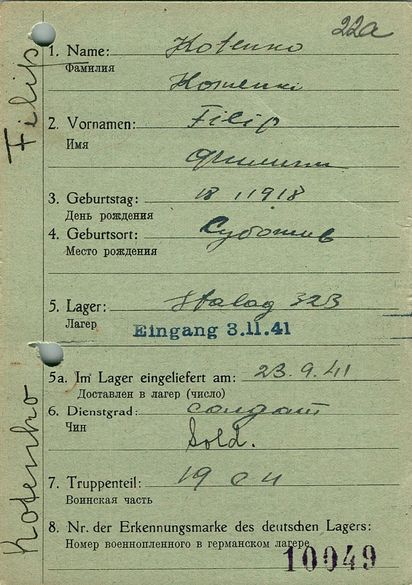 22a
1. Name: Kotenko
Фамилия
2. Vornamen: Filip
Имя
Филипп
3. Geburtstag: 18 1 1918
День рождения
4. Geburtsort: Суботив
Место рождения
5. Lager: Stalag 323
Лагер
Eingang 3.11.41
5a. Im Lager eingeliefert am: 23.9.41
Доставлен в лагер (число)
6. Dienstgrad: солдат
Чин
Sold.
7. Truppenteil: 19
Воинская часть
8. Nr. der Erkennungsmarke des deutschen Lagers:
Номер военнопленного в германском лагере
10049
Filip
Kotenko